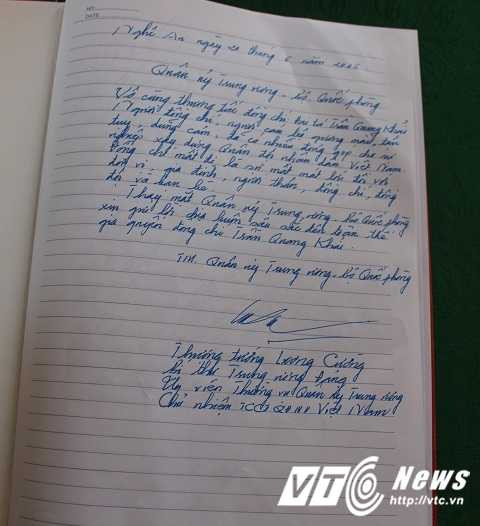 NO.
DATE
Nghệ An ngày 20 tháng 6 năm 2016
Quân ủy Trung ương - Bộ Quốc phòng
Vô cùng thương tiếc đồng chí Đại tá Trần Quang Khải
Người đồng chí, người cán bộ mẫu, tận
tụy, dũng cảm, đã có nhiều đóng góp cho sự
nghiệp xây dựng Quân đội nhân dân Việt Nam
Đồng chí mất đi là sự mất mát lớn đối với
đơn vị, gia đình, người thân, đồng chí, đồng
đội và bạn bè.
Thay mặt Quân ủy Trung ương, Bộ Quốc phòng
xin gửi lời chia buồn sâu sắc đến toàn thể
gia quyến đồng chí Trần Quang Khải.
TM. Quân ủy Trung ương - Bộ Quốc phòng
Thượng tướng Lương Cường
Bí thư Trung ương Đảng
Ủy viên Thường vụ Quân ủy Trung ương
Chủ nhiệm TCCT QĐND Việt Nam
VTC News
http://vtc.vn